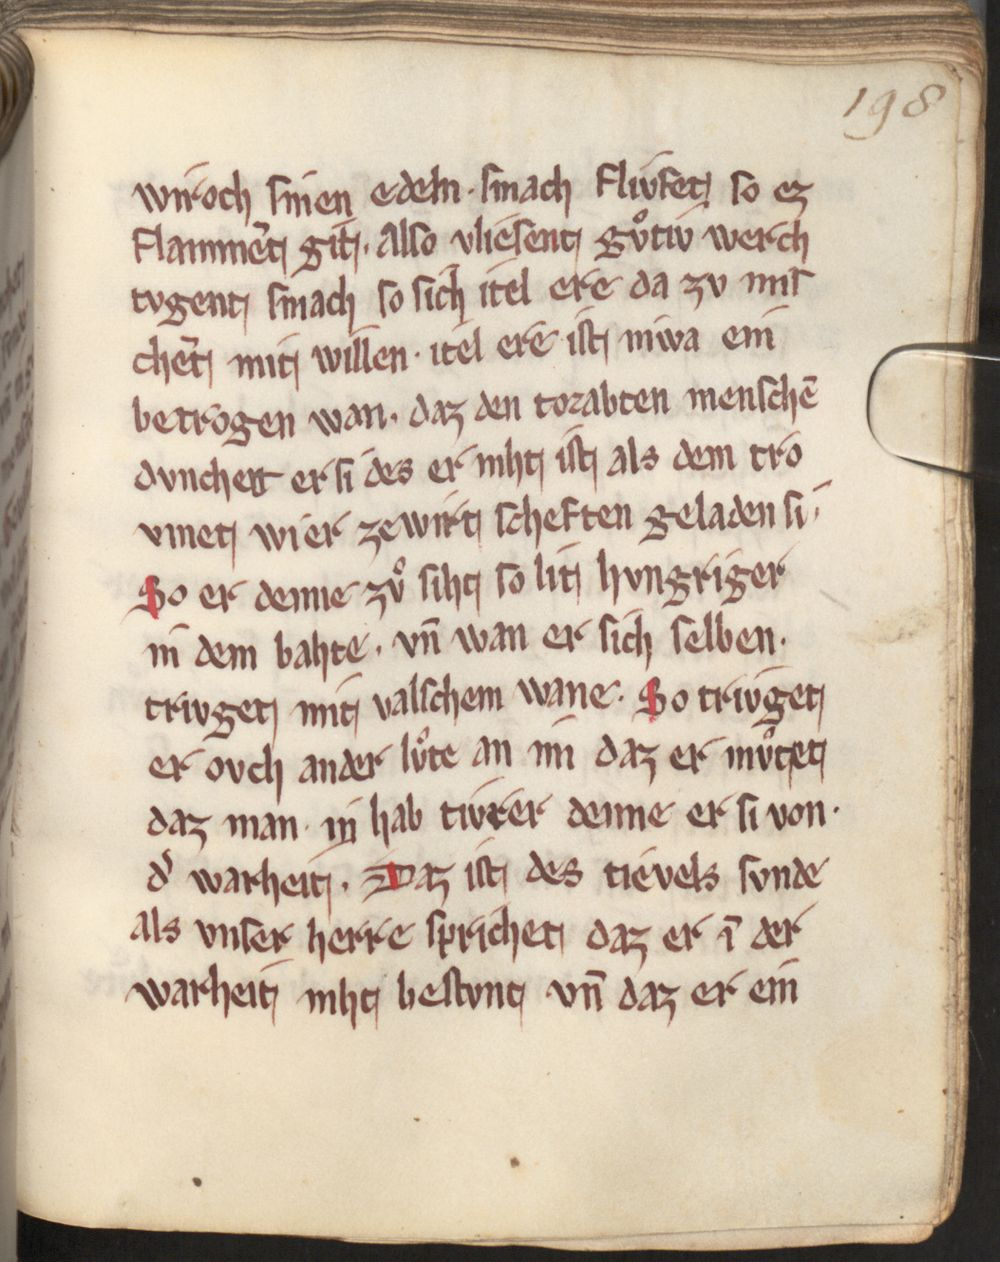 198
wiroch sinen edeln · smach fliuset so ez
flammẽt git · Also vliesent gůtiu werch
tvgent smach so sich itel ere da zv mis
chẽt mit willen · itel ere ist niwa ein
betrogen wan · daz den torahten menschē
dvnchet er si des er niht ist als dem tro
vmet wi er zewirt scheften geladen si ·
So er denne zů siht so lit hvngriger
in dem bahte · vñ wan er sich selben ·
trivget mit valschem wane · So triuget
er ovch ander lůte an im daz er můtet
daz man in hab tiurer denne er si von ·
d᾿ warheit · Daz ist des tievels svnde
als vnser herre sprichet daz er ī der
warheit niht bestvnt vñ daz er ein